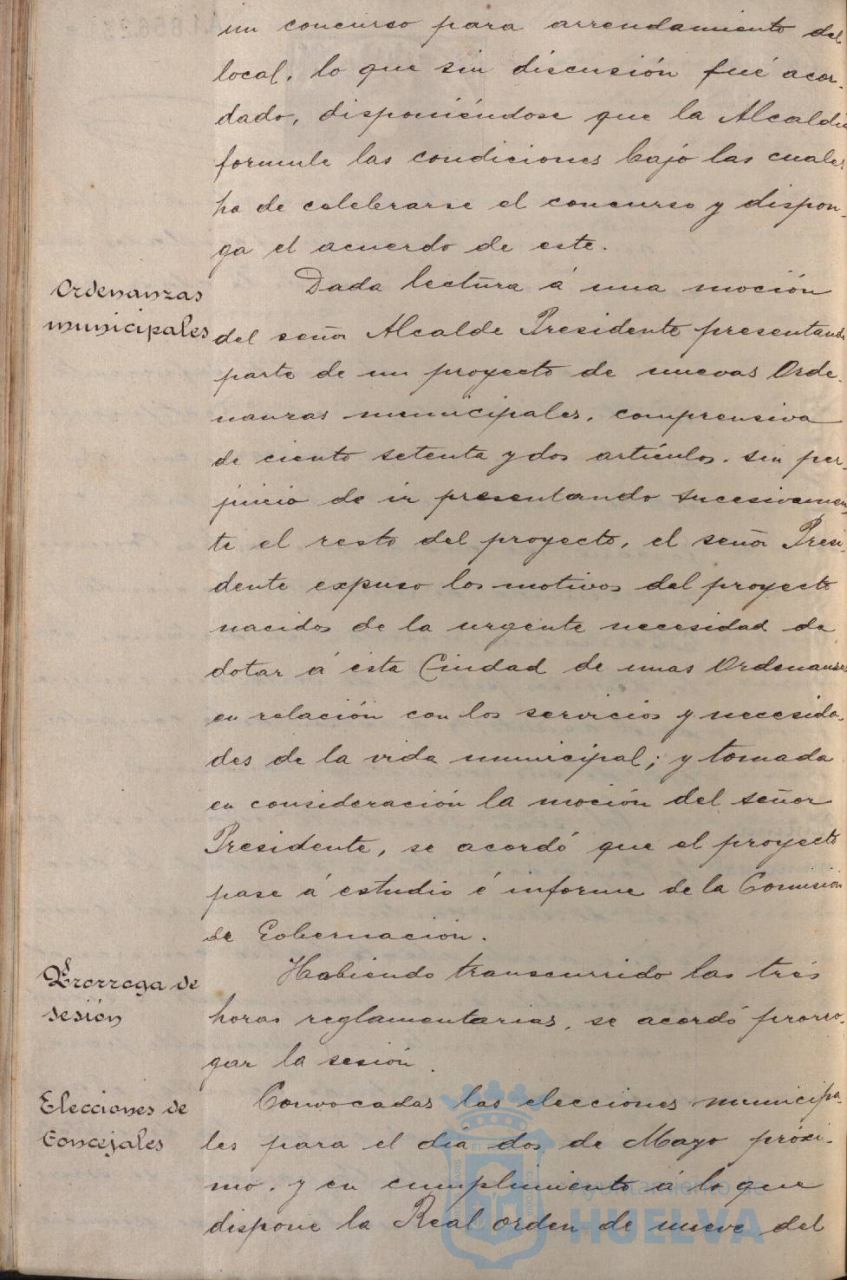 un concurso para arrendamiento del
local, lo que sin discusión fué acor-
dado, disponiéndose que la Alcaldía
formule las condiciones bajo las cuales
ha de celebrarse el concurso y dispon-
ga el acuerdo de este.
Ordenanzas
municipales
Dada lectura á una moción
del señor Alcalde Presidente presentando
parte de un proyecto de nuevas Orde-
nanzas municipales, comprensiva
de ciento setenta y dos artículos, sin per-
juicio de ir presentando sucesivamen-
te el resto del proyecto, el señor Presi-
dente expuso los motivos del proyecto
nacidos de la urgente necesidad de
dotar á esta Ciudad de unas Ordenanzas
en relación con los servicios y necesida-
des de la vida municipal; y tomada
en consideración la moción del señor
Presidente, se acordó que el proyecto
pase á estudio é informe de la Comisión
de Gobernación.
Prorroga de
sesión
Habiendo transcurrido las tres
horas reglamentarias, se acordó prorro-
gar la sesión.
Elecciones de
Concejales
Convocadas las elecciones municipa-
les para el día dos de Mayo próxi-
mo, y en cumplimiento á lo que
dispone la Real orden de nueve del
Ayuntamiento de
HUELVA